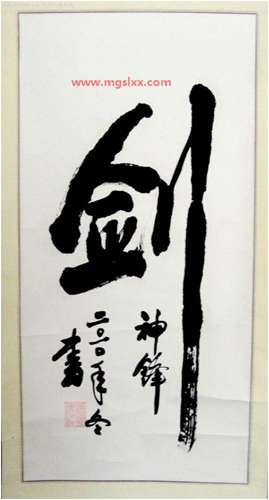 www.mgslxx.com
剑
神鋒
二〇一〇年冬